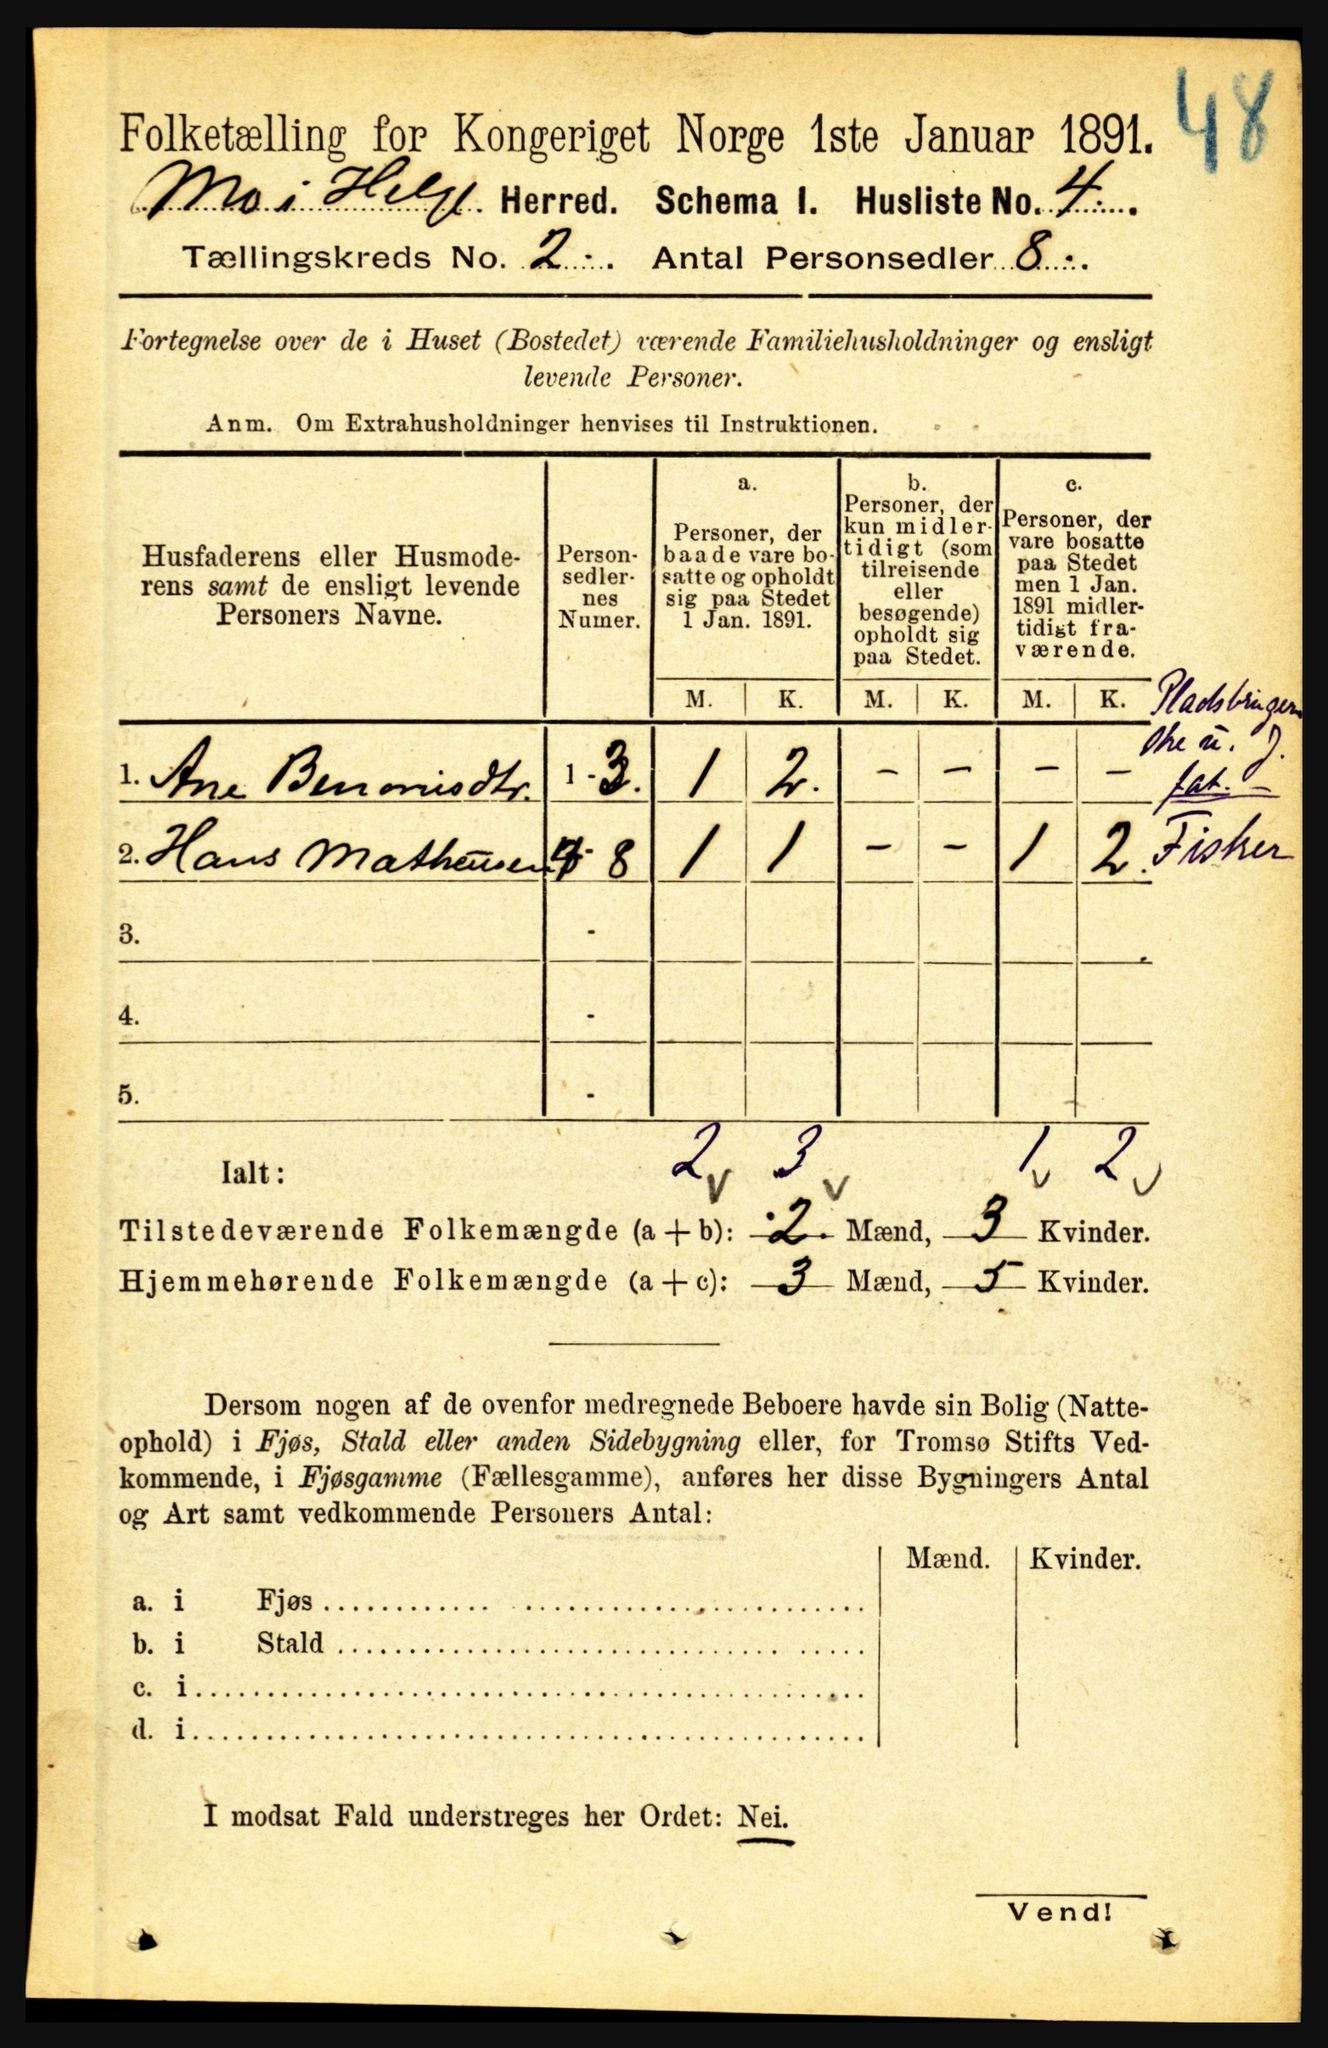 48
Folketælling for Kongeriget Norge 1ste Januar 1891.
Mo i Helgl. Herred. Schema I. Husliste No. 4.
Tællingskreds No. 2. Antal Personsedler 8.
Fortegnelse over de i Huset (Bostedet) værende Familiehusholdninger og ensligt
levende Personer.
Anm. Om Extrahusholdninger henvises til Instruktionen.
Husfaderens eller Husmode-
rens samt de ensligt levende
Personers Navne.
Person-
sedler-
nes
Numer.
a.
Personer, der
baade vare bo-
satte og opholdt
sig paa Stedet
1 Jan. 1891.
b.
Personer, der
kun midler-
tidigt (som
tilreisende
eller
besøgende)
opholdt sig
paa Stedet.
c.
Personer, der
vare bosatte
paa Stedet
men 1 Jan.
1891 midler-
tidigt fra-
værende.
M. K. M. K. M. K.
1. Ane Benonisdtr. 1 - 3. 1 2. - - - -
2. Hans Matheusen 4 - 8 1 1 - - 1 2. Fisker
3. -
4. -
5. -
Ialt: 2 3 1 2
Tilstedeværende Folkemængde (a + b): 2. Mænd, 3 Kvinder.
Hjemmehørende Folkemængde (a + c): 3 Mænd, 5 Kvinder.
Dersom nogen af de ovenfor medregnede Beboere havde sin Bolig (Natte-
ophold) i Fjøs, Stald eller anden Sidebygning eller, for Tromsø Stifts Ved-
kommende, i Fjøsgamme (Fællesgamme), anføres her disse Bygningers Antal
og Art samt vedkommende Personers Antal:
Mænd. Kvinder.
a. i Fjøs
b. i Stald
c. i
d. i
I modsat Fald understreges her Ordet: Nei.
Vend!